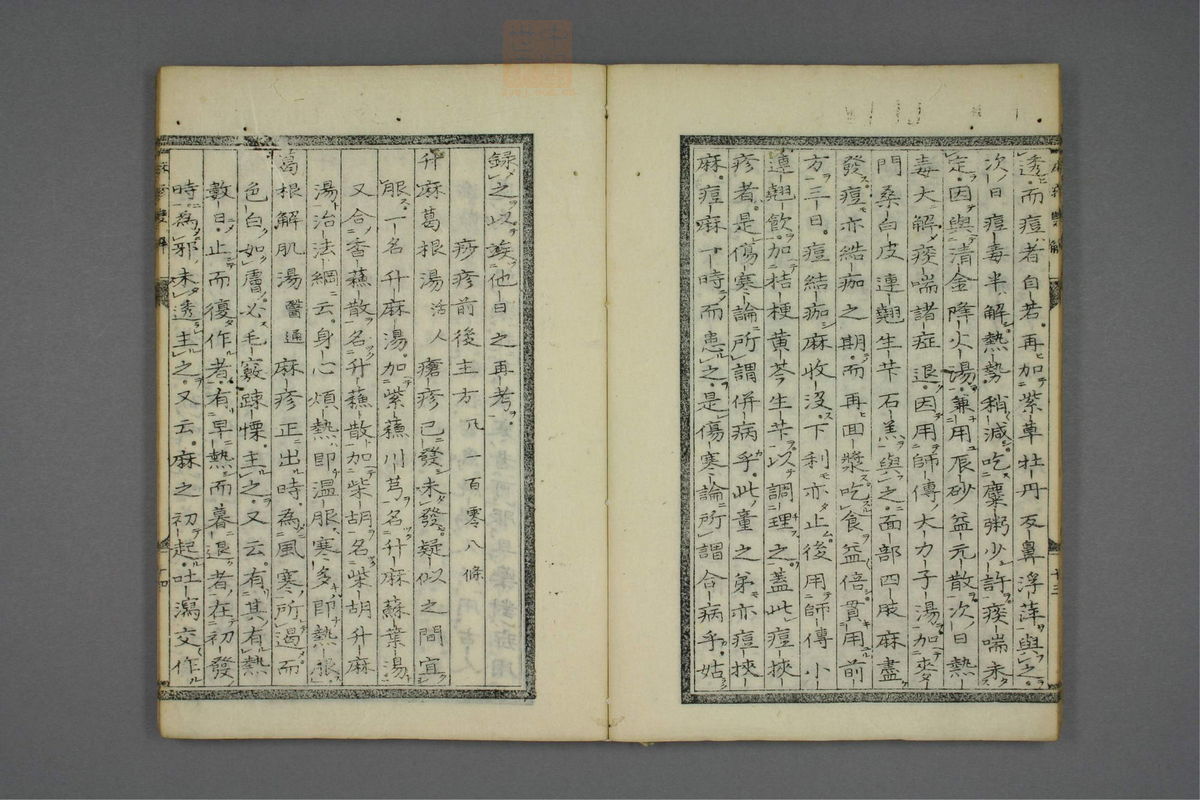 透而痘者自若再加紫草牡丹反鼻浮萍與之
次日痘毒半解熱勢稍減吃麋粥少許痰喘未
定因與清金降火湯兼用辰砂益元散次日熱
毒大解痰喘諸症退因用師傳大力子湯加麥
門桑白皮連翹生芐石羔與之面部四肢麻盡
發痘亦結痂之期而再回漿吃食益倍貫用前
方三日痘結痂麻收没下利亦止後用師傳小
連翹飲加桔梗黄芩生芐以調理之蓋此痘挾
疹者是傷寒論所謂併病乎此童之弟亦痘挾
麻痘麻丁時而患之是傷寒論所謂合病乎姑
録之以竢他日之再考
痧疹前後主方凡一百零八條
升麻葛根湯活人 瘡疹已發未發疑似之間宜
服一名升麻湯加紫蘓川芎名升麻蘇葉湯
又合香蘓散名升蘓散加柴胡名柴胡升麻
湯治法綱云身心煩熱即温服寒多即熱服
葛根解肌湯醫通 麻疹正出時為風寒所遏而
色白如膚必毛竅踈慄主之又云有其有熱
數日止而復作者有早熱而暮退者在初發
時為邪未透主之又云麻之初起吐瀉交作
十三
十四